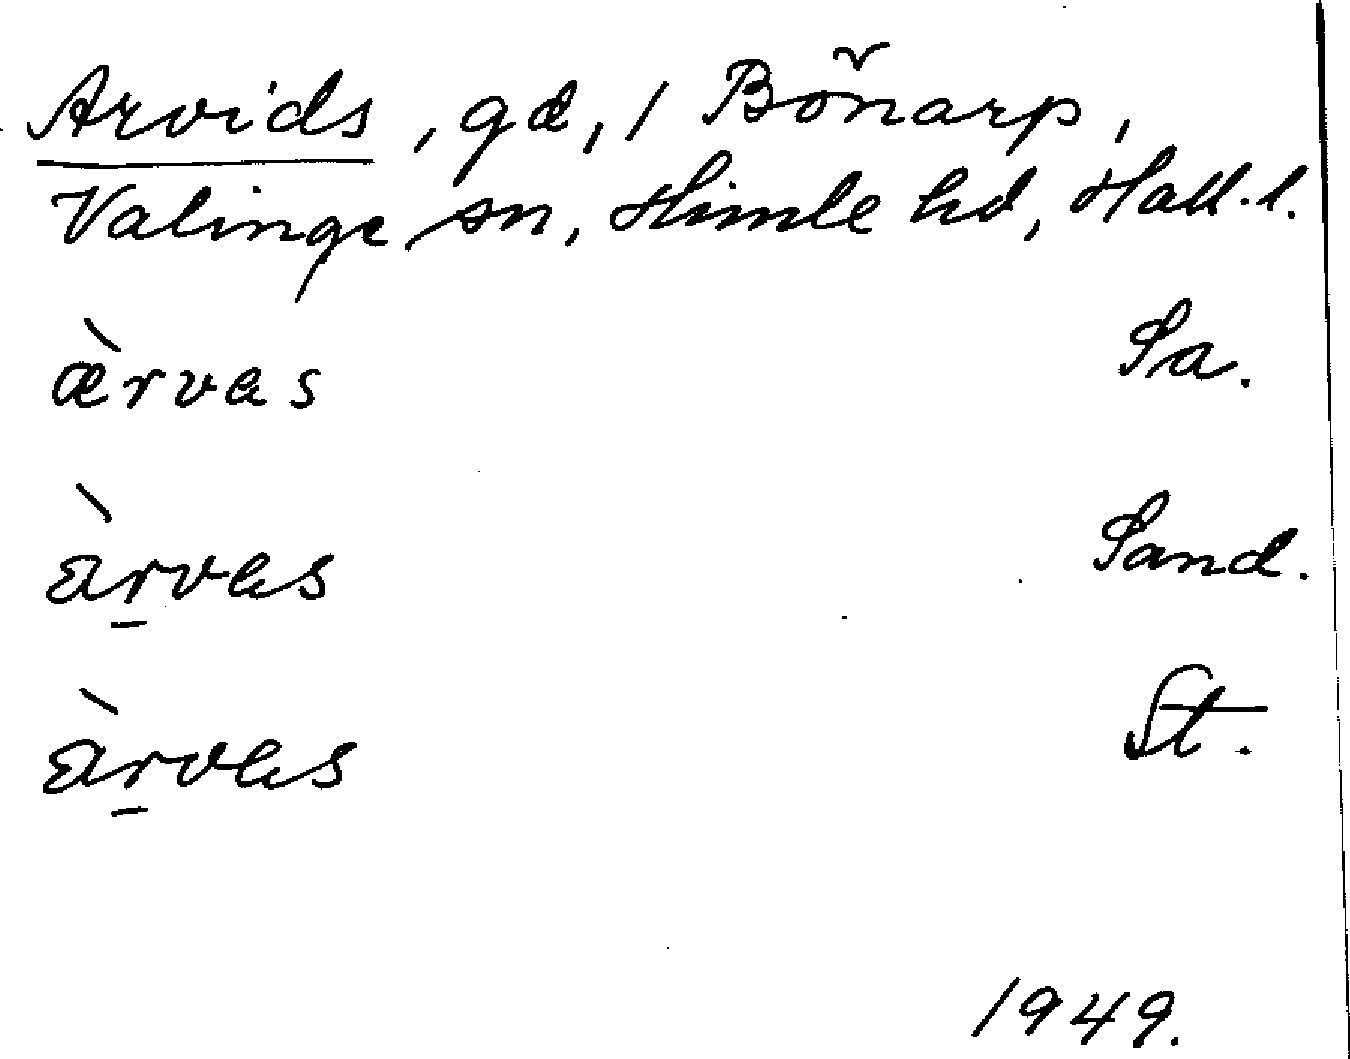 Arvids, gd, 1 Bönarp,
Valinge sn, Himle hd, Hall. l.
æ̀rvas Sa.
àr̲vas Sand.
àr̲vas St.
1949.